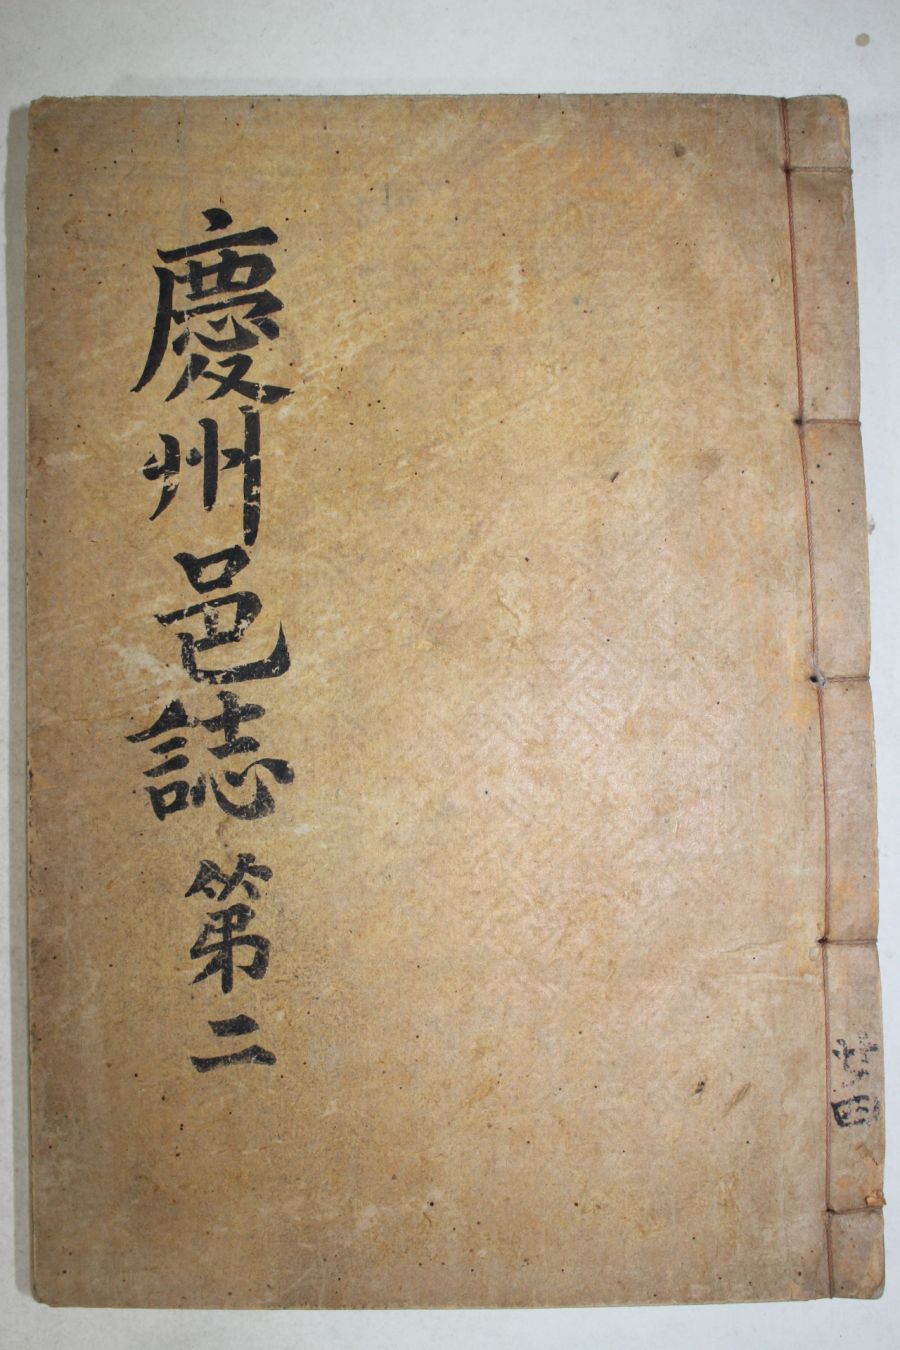 慶州邑誌 第二
共四